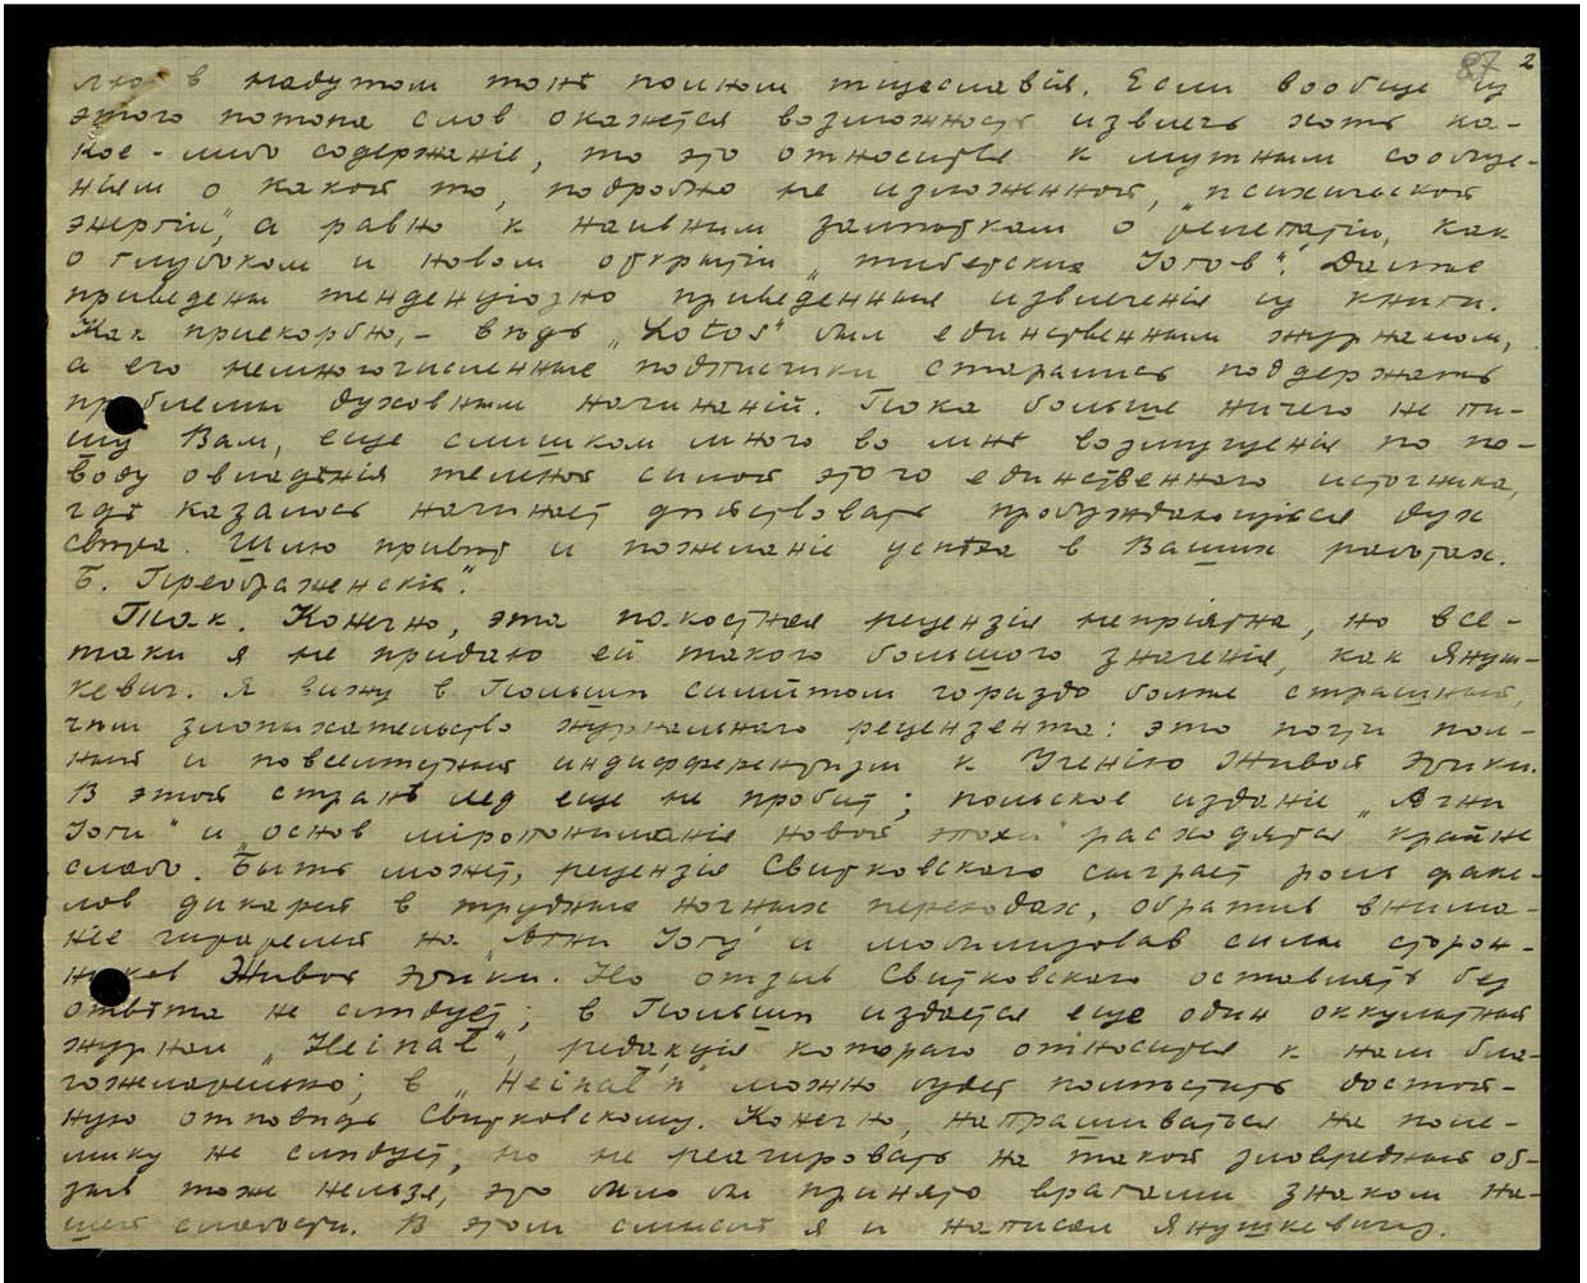 87 2
лю в надутом тонѣ полном тщеславія. Если вообще из
этого потопа слов окажется возможность извлечь хоть ка-
кое-либо содержаніе, то это относится к мутным сообще-
ніям о какой то, подробно не изложенной, „психической
энергіи", а равно к наивным замѣткам о телепатіи, как
о глубоком и новом открытіи „тибетских Іогов". Далѣе
приведены тенденціозно приведенныя извлеченія из книги.
Как прискорбно,- вѣдь „Lotos" был единственным журналом,
а его немногочисленные подписчики старались поддержать
проблемы духовным начинаній. Пока больше ничего не пи-
шу Вам, еще слишком много во мнѣ возмущенія по по-
воду овладѣнія темной силой этого единственного источника,
гдѣ казалось начинает дѣйствовать пробуждающійся дух
свѣта. Шлю привѣт и пожеланіе успѣха в Ваших работах.
Б. Преображенскій".
Так. Конечно, эта пакостная рецензія непріятна, но все-
таки я не придаю ей такого большого значенія, как Януш-
кевич. Я вижу в Польшѣ симптом гораздо болѣе страшный,
чѣм злопыхательство журнальнаго рецензента: это почти пол-
ный и повсемѣстный индифферентизм к Ученію Живой Этики.
В этой странѣ лед еще не пробит; польское изданіе „Агни
Іоги" и „основ міропониманія новой эпохи" расходятся крайне
слабо. Быть может, рецензія Свитковского сыграет роль факе-
лов дикарей в трудных ночных переходах, обратив внима-
ніе читателей на „Агни Іогу" и мобилизовав силы сторон-
ников Живой Этики. Но отзыв Свитковского оставлять без
отвѣта не слѣдует; в Польшѣ издается еще один оккультный
журнал „Heinal", редакція котораго относится к нам бла-
гожелательно; в „Heinal'ѣ" можно будет помѣстить достой-
ную отповѣдь Свитковскому. Конечно, напрашиваться на поле-
мику не слѣдует, но не реагировать на такой зловредный от-
зыв тоже нельзя, это было бы принято врагами знаком на-
шей слабости. В этом смыслѣ я и написал Янушкевичу.